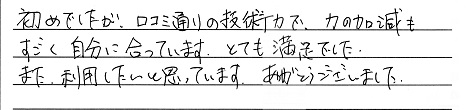 初めでしたが、口コミ通りの技術力で、力の加減も
すごく自分に合っています。とても満足でした。
また、利用したいと思っています。ありがとうございました。